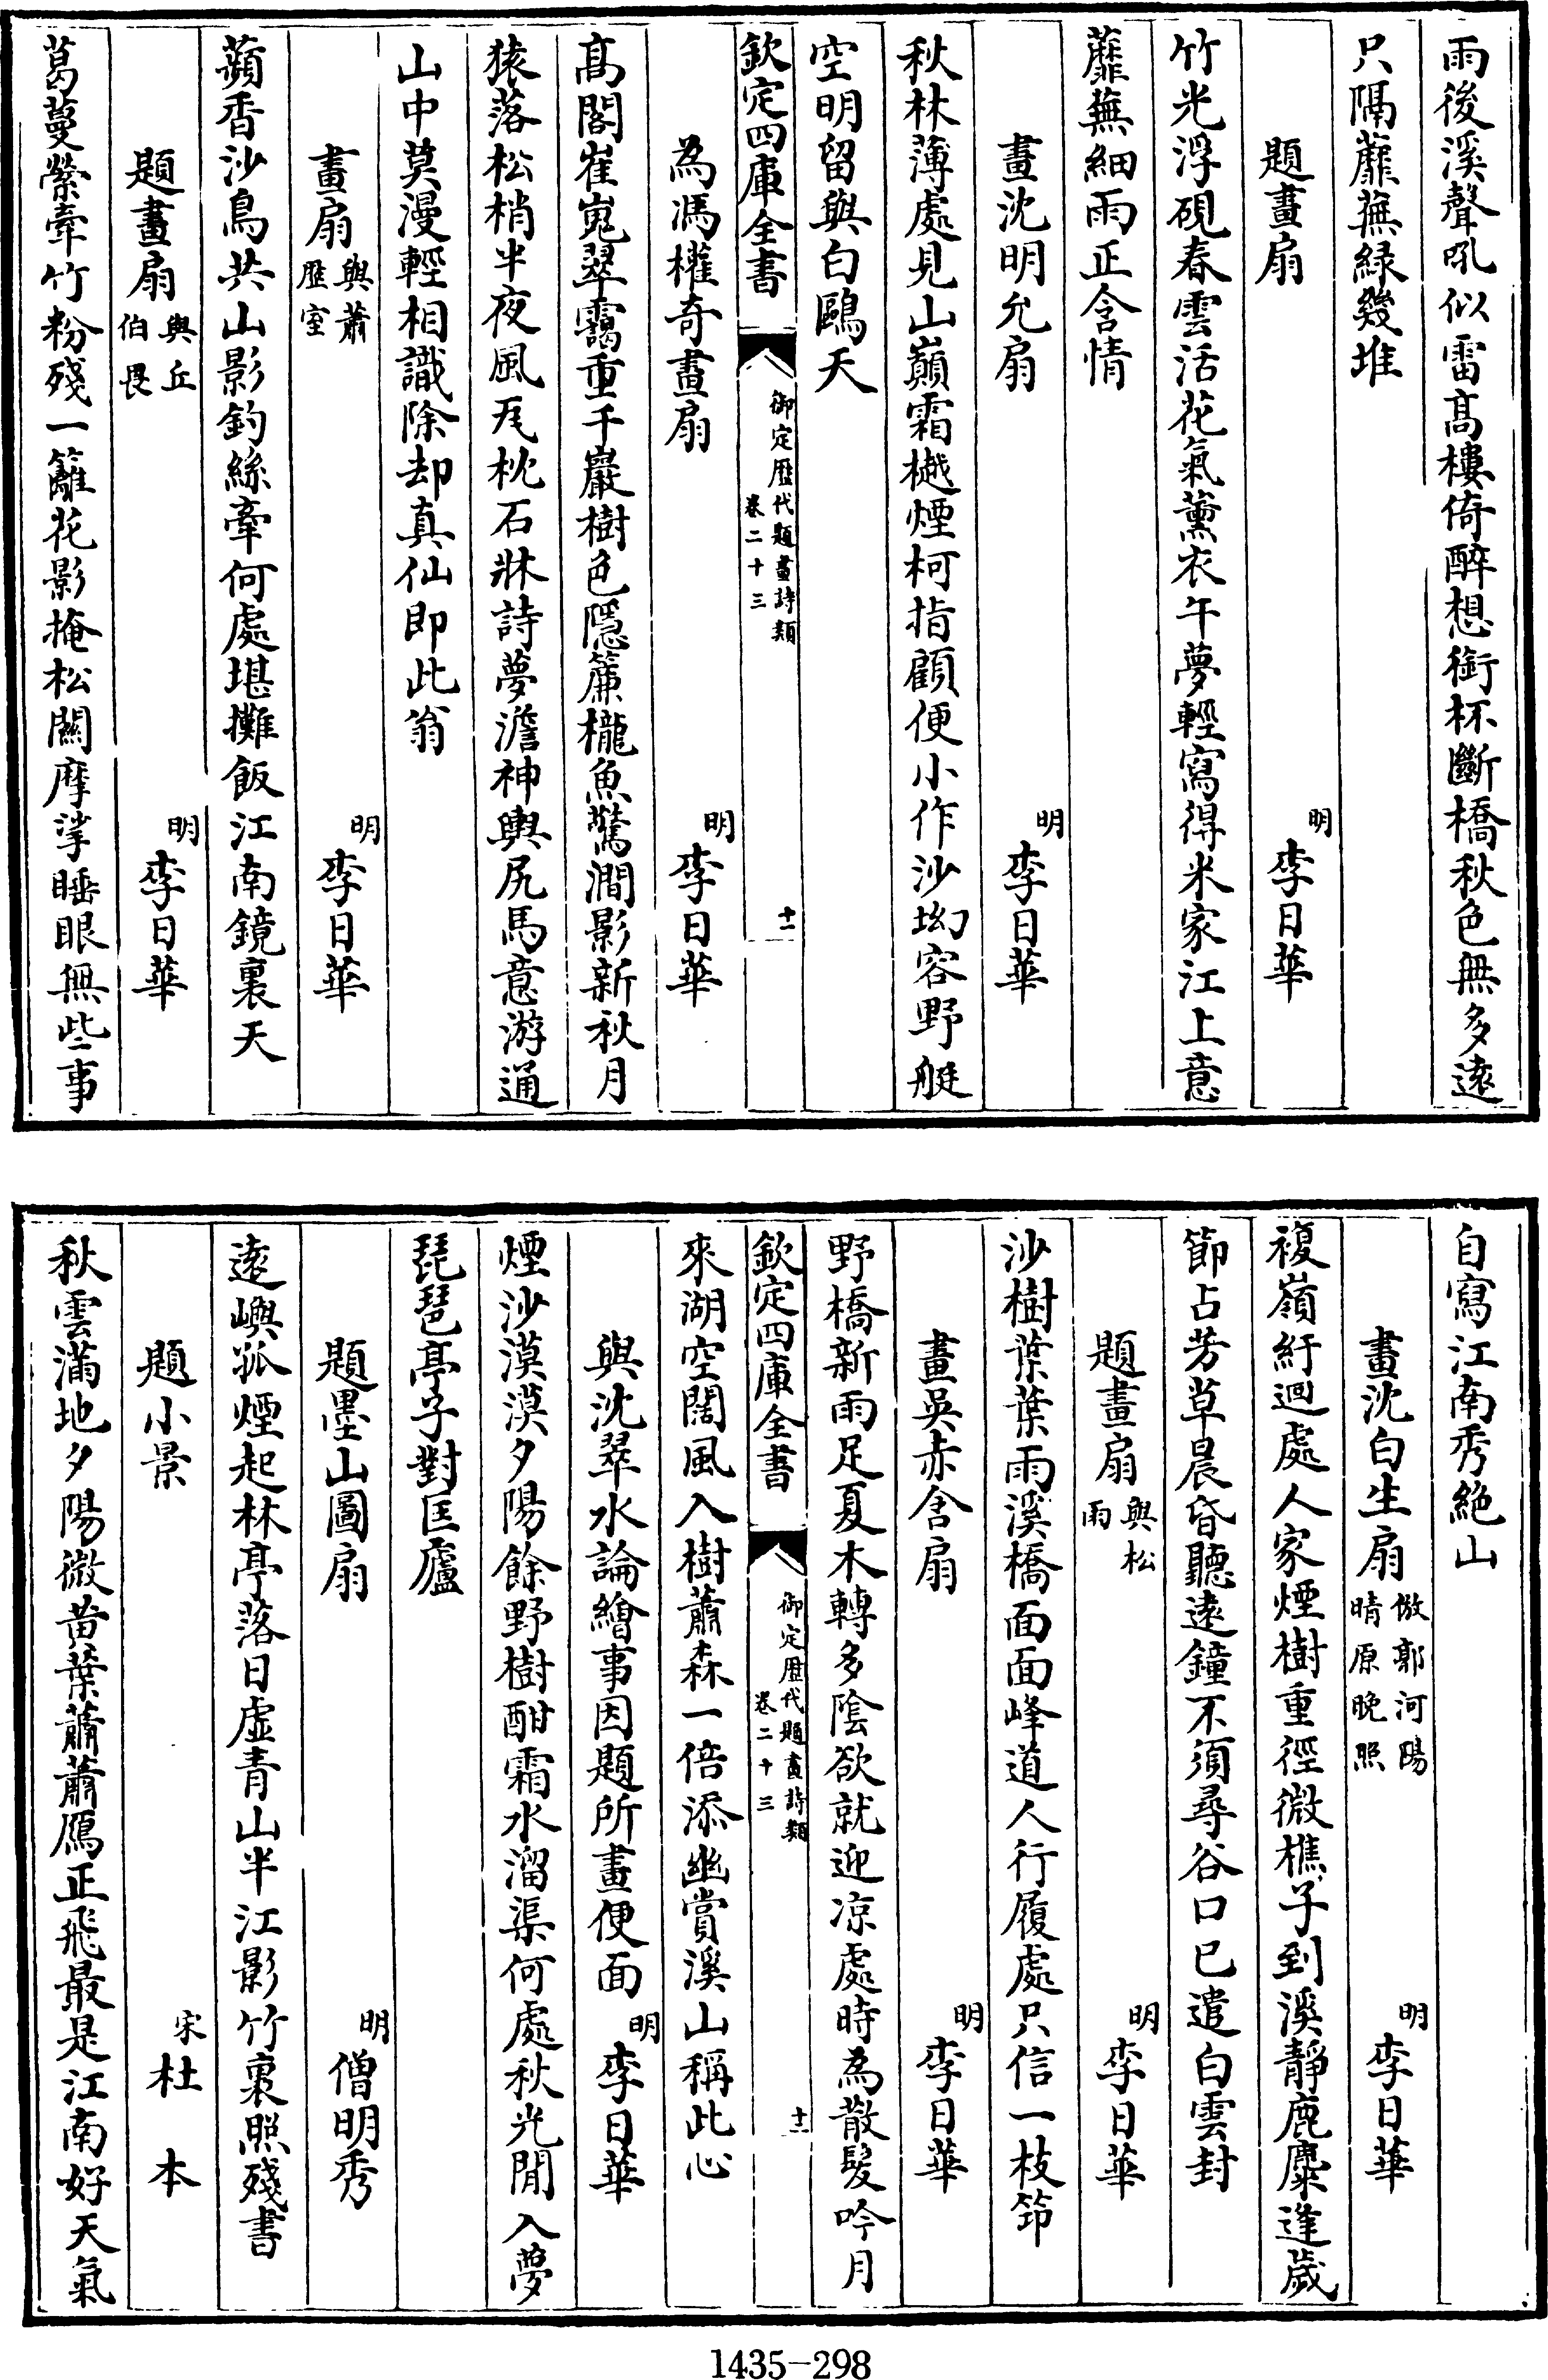 雨後溪聲吼似雷髙樓倚醉想銜杯斷橋秋色無多逺
只隔蘼蕪緑幾堆
題畫扇 明 李日華
竹光浮硯春雲活花氣薰衣午夢輕寫得米家江上意
蘼蕪細雨正含情
畫沈明允扇 明 李日華
秋林薄處見山巔霜樾煙柯指顧便小作沙坳容野艇
空明留與白鷗天
欽定四庫全書 御定歴代題畫詩類 卷二十三 十一
為馮權奇畫扇 明 李日華
髙閣崔嵬翠靄重千巖樹色隱簾櫳魚驚澗影新秋月
猿落松梢半夜風瓦枕石牀詩夢澹神輿尻馬意游通
山中莫漫輕相識除却真仙即此翁
畫扇 與蕭歴室 明 李日華
蘋香沙鳥共山影釣絲牽何處堪攤飯江南鏡裏天
題畫扇 與丘伯畏 明 李日華
葛蔓縈牽竹粉殘一籬花影掩松闗摩挲睡眼無些事
自寫江南秀絶山
畫沈白生扇 倣郭河陽晴原晚照 明 李日華
複嶺紆迴處人家煙樹重徑微樵子到溪靜鹿麋逢歲
節占芳草晨昏聽逺鐘不須尋谷口已遣白雲封
題畫扇 與松雨 明 李日華
沙樹葉葉雨溪橋面面峰道人行履處只信一枝笻
畫吳赤含扇 明 李日華
野橋新雨足夏木轉多陰欲就迎凉處時為散髮吟月
欽定四庫全書 御定歴代題畫詩類 卷二十三 十二
來湖空闊風入樹蕭森一倍添幽賞溪山稱此心
與沈翠水論繪事因題所畫便面 明 李日華
煙沙漠漠夕陽餘野樹酣霜水溜渠何處秋光閒入夢
琵琶亭子對匡廬
題墨山圖扇 明 僧明秀
逺嶼孤煙起林亭落日虛青山半江影竹裏照殘書
題小景 宋 杜本
秋雲滿地夕陽微黄葉蕭蕭鴈正飛最是江南好天氣
1435-298